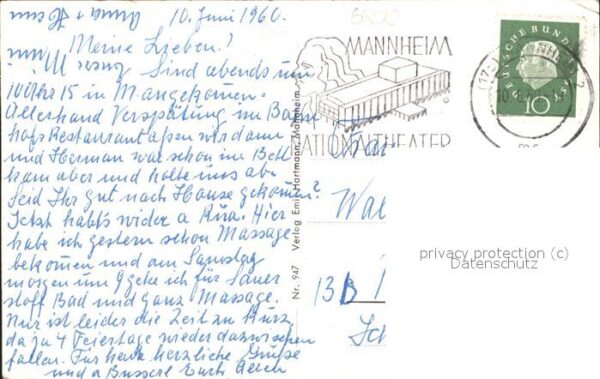 10. Juni 1960.
Meine Lieben!
Sind abends um
10 Uhr 15 in Mangekomen.
Allerhand Verspätung im Bahn
hofsRestaurant assen wir dann
und Herman war schon im Bett
kam aber und holte uns ab.
Seid Ihr gut nach Hause gekomen?
Jetzt habts wider a Rua. Hier
habe ich gestern schon Massage
bekomen und am Samstag
morgen um 9 gehe ich für Sauer
stoff Bad und ganz Massage.
Nur ist leider die Zeit zu kurz
da ja 4 Feiertage wieder dazwischen
fallen. Für heute herzliche Grüße
und a Busserl Euch allen
Anna + Herm
Nr. 947 Verlag Emil Hartmann, Mannheim
6800
MANNHEIM
NATIONALTHEATER
MANNHEIM 2
DEUTSCHE BUNDESPOST
10
13B
privacy protection (c)
Datenschutz